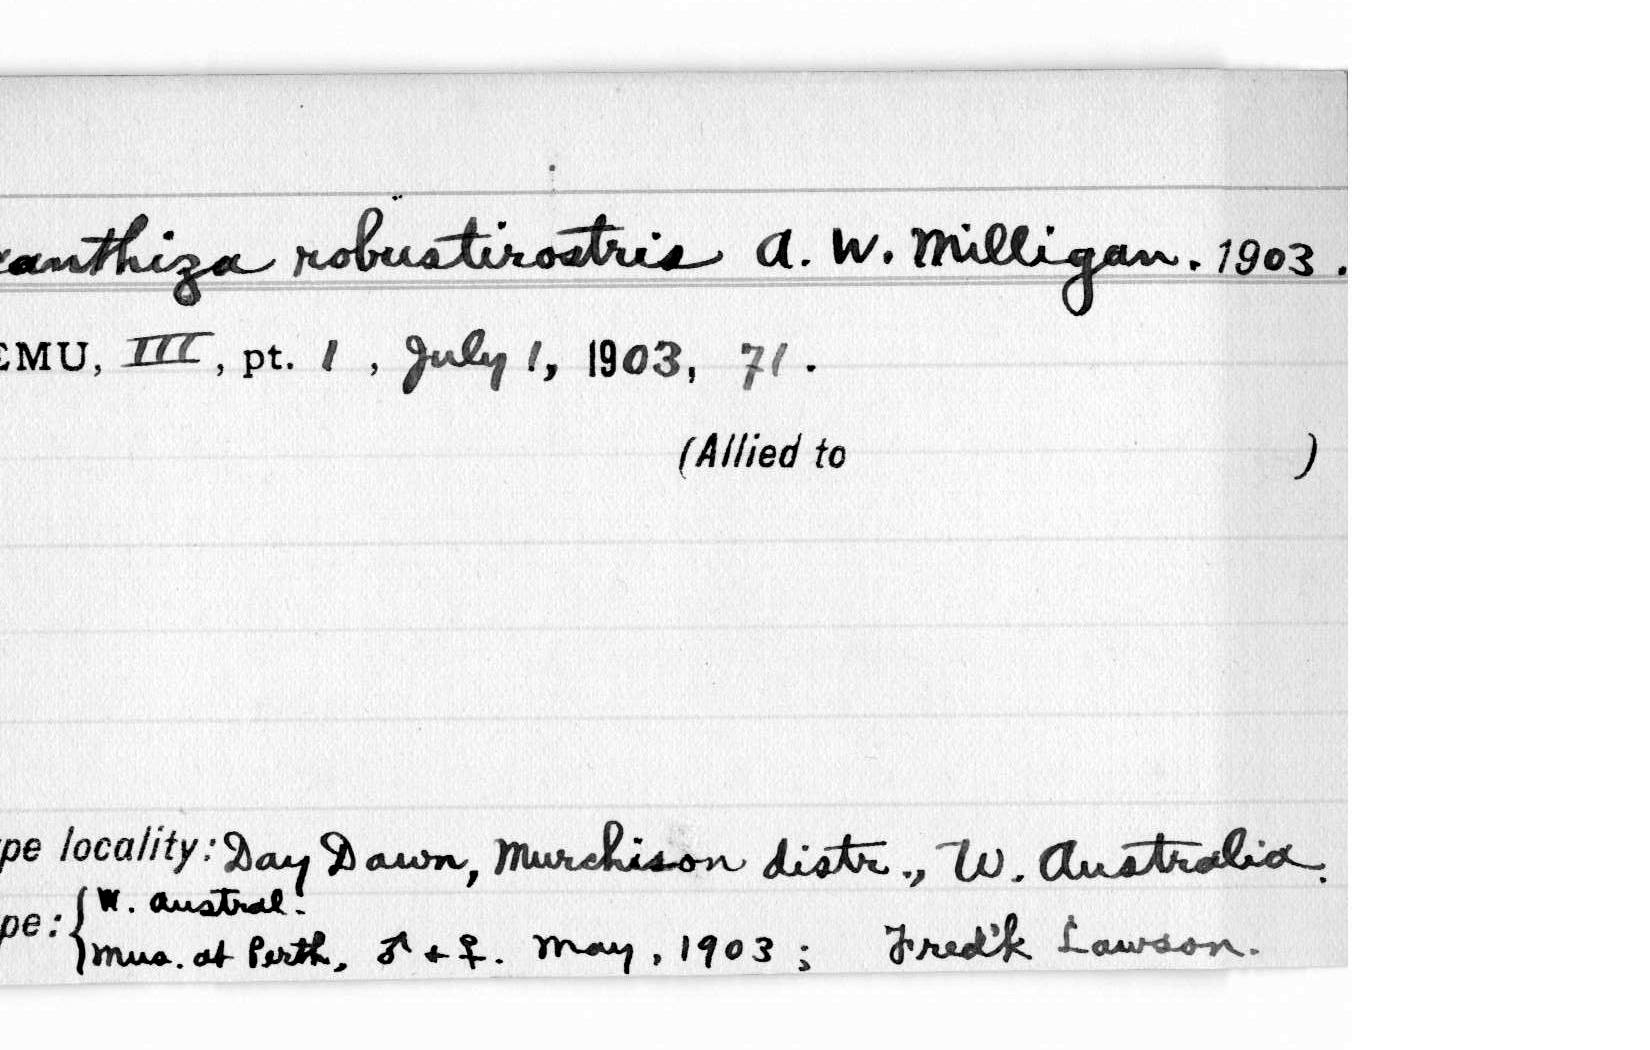 canthiza robustirostris A. W. Milligan. 1903.
EMU, III, pt. 1, July 1, 1903, 71.
(Allied to )
ype locality: Day Dawn, Murchison distr., W. Australia.
W. Austral.
ype: Mus. at Perth, ♂ + ♀. May, 1903; Fred'k Lawson.